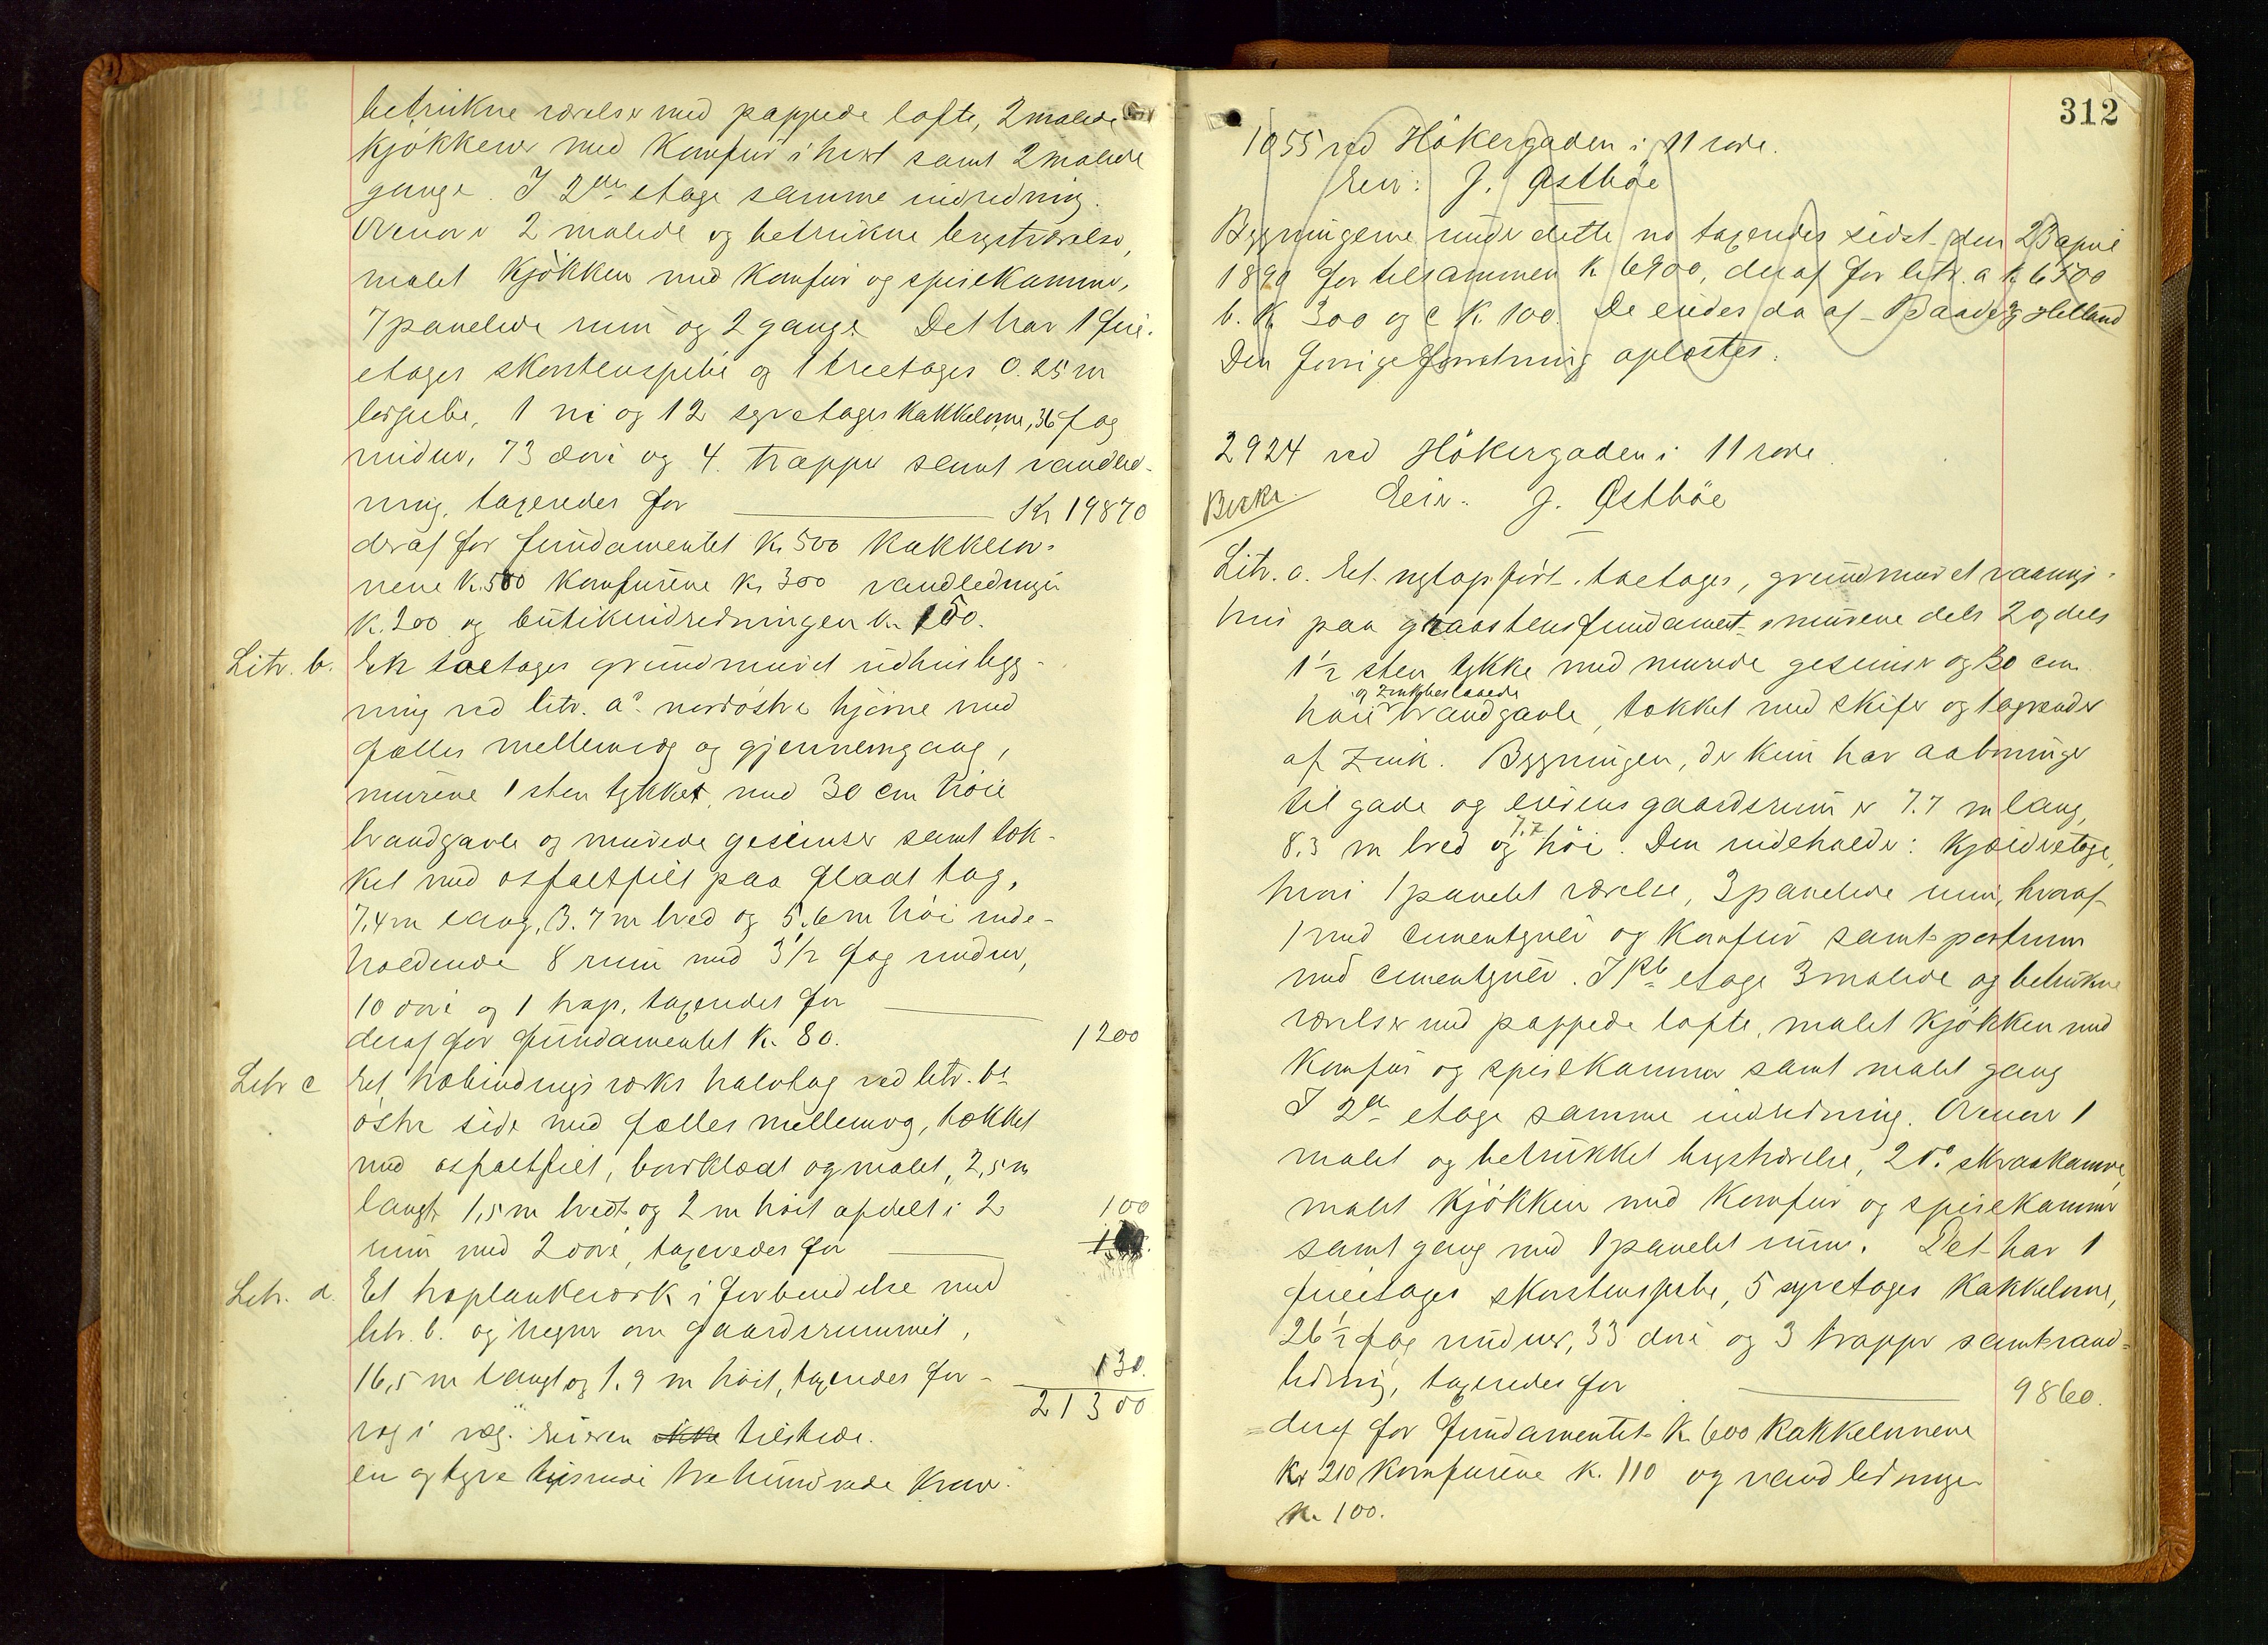 betrukne værelser med pappede lofte, 2 malede
kjøkkener med komfur i hvert samt 2 malede
gange. I 2den etage samme indredning.
Ovenover 2 malede og betrukne brystværelser,
malet kjøkken med komfur og spisekammer,
7 panelede rum og 2 gange. Det har 1 fire-
etages skorstenspibe og 1 treetages 0.25 m
lerpibe, 1 ni og 12 syvetages kakkelovne, 36 fag
vinduer, 73 døre og 4 trapper samt vandled-
ning, taxeredes for Kr 19870
deraf for fundamentet K. 500 kakkelov-
nene K. 500 komfurene Kr 300 vandledningen
K. 200 og butikindredningen K. 150.
Litr. b. En toetages grundmuret udhusbyg-
ning ved litr. a's nordøstre hjørne med
fælles mellemvæg og gjennemgang,
murene 1 sten tykke, med 30 cm høie
brandgavle og murede gesimser samt tæk-
ket med asfaltfilt paa fladt tag,
7,4 m lang, 3.7 m bred og 5.6 m høi inde-
holdende 8 rum med 3 1/2 fag vinduer,
10 døre og 1 trap, taxeredes for
deraf for fundamentet K. 80. 1200
Litr c Et træbindingsværks halvtag ved litr. b's
østre side med fælles mellemvæg, tækket
med asfaltfilt, bordklædt og malet, 2,5 m
langt, 1,5 m bredt og 2 m høit afdelt i 2 100
rum med 2 døre, taxeredes for
Litr. d. Et træplankeværk i forbindelse med
litr. b. og hegner om gaardsrummet,
16,5 m langt og 1.9 m høit, taxeredes for 130.
21300
væg i væg. Eieren ikke tilstede.
en og tyve tusinde tre hundrede Kroner.
312
1055 ved Høkergaden i 11 rode.
Eier: J. Østbøe
Bygningerne under dette no taxeredes sidst den 23 april
1890 for tilsammen K 6900, deraf for litr. a K 6500
b. K 300 og c K. 100. De eiedes da af Baade & Helland
Den forrige forretning oplæstes.
2924 ved Høkergaden i 11 rode.
Eier: J. Østbøe
Litr. a. Et nytopført toetages, grundmuret vaanings-
hus paa graastensfundament, murene dels 2 og dels
1 1/2 sten tykke med murede gesimser og 30 cm
og zinkbeslaaede
høie brandgavle, tækket med skifer og tagrender
af zink. Bygningen, der kun har aabninger
til gade og eierens gaardsrum er 7.7 m lang,
7,7
8,3 m bred og høi. Den indeholder: Kjælderetage,
hvori 1 panelet værelse, 3 panelede rum, hvoraf
1 med cementgulv og komfur samt portrum
med cementgulv. I 1ste etage 3 malede og betrukne
værelser med pappede lofte, malet kjøkken med
komfur og spisekammer samt malet gang
I 2den etage samme indredning. Ovenover 1
malet og betrukket brystværelse, 2 do skraakamre,
malet kjøkken med komfur og spisekammer
samt gang med 1 panelet rum. Det har 1
fireetages skorstenspibe, 5 syvetages kakkelovne,
26 1/2 fag vinduer, 33 døre og 3 trapper samt vand-
ledning, taxeredes for 9860.
deraf for fundamentet K. 600 kakkelovnene
Kr 210 komfurene K. 110 og vandledningen
K. 100.